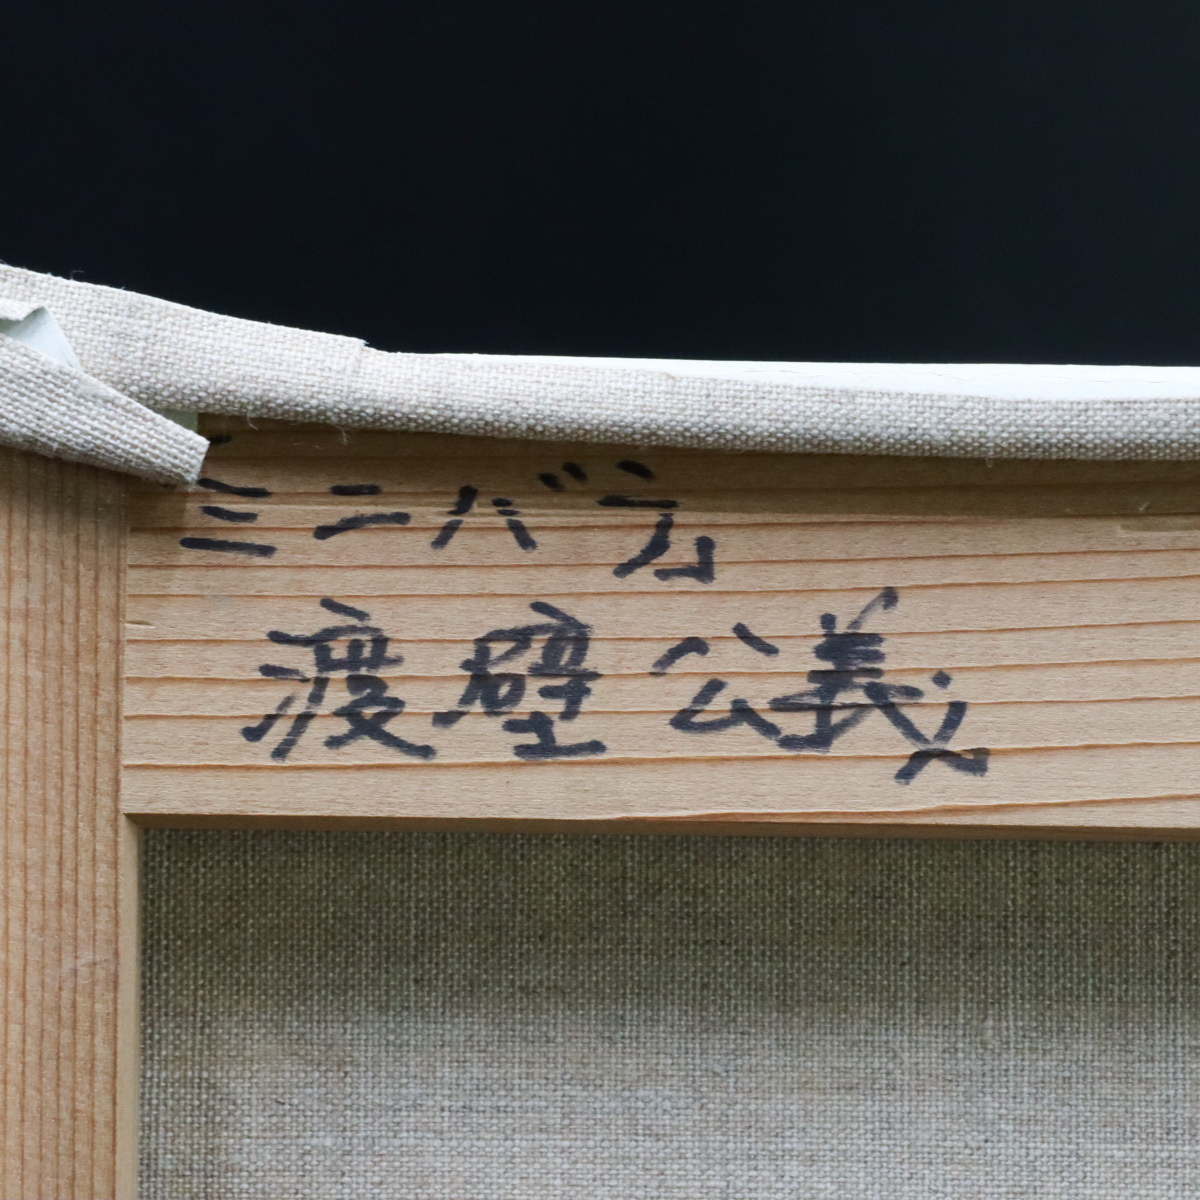 「ミニバラ」
渡壁 公義